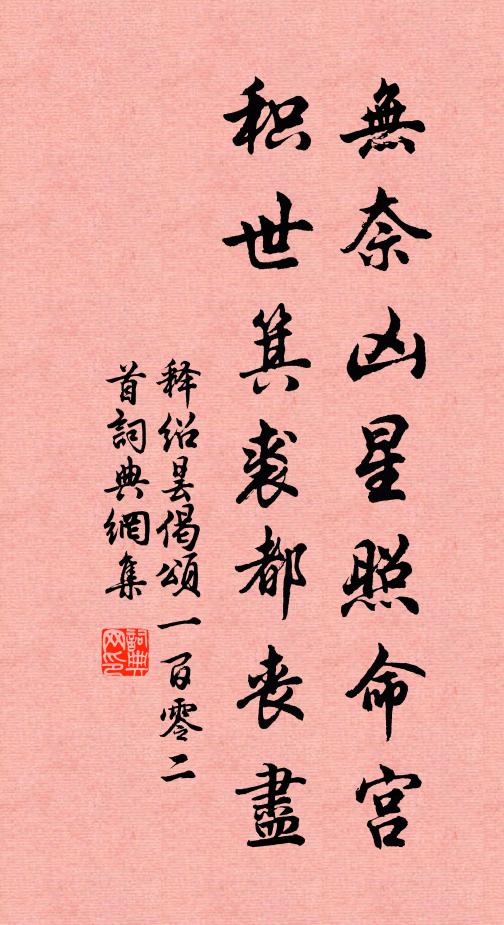 無奈凶星照命宫
积世箕裘都丧盡
释绍昙偈頌一百零二
首詞典網集
詞典网印